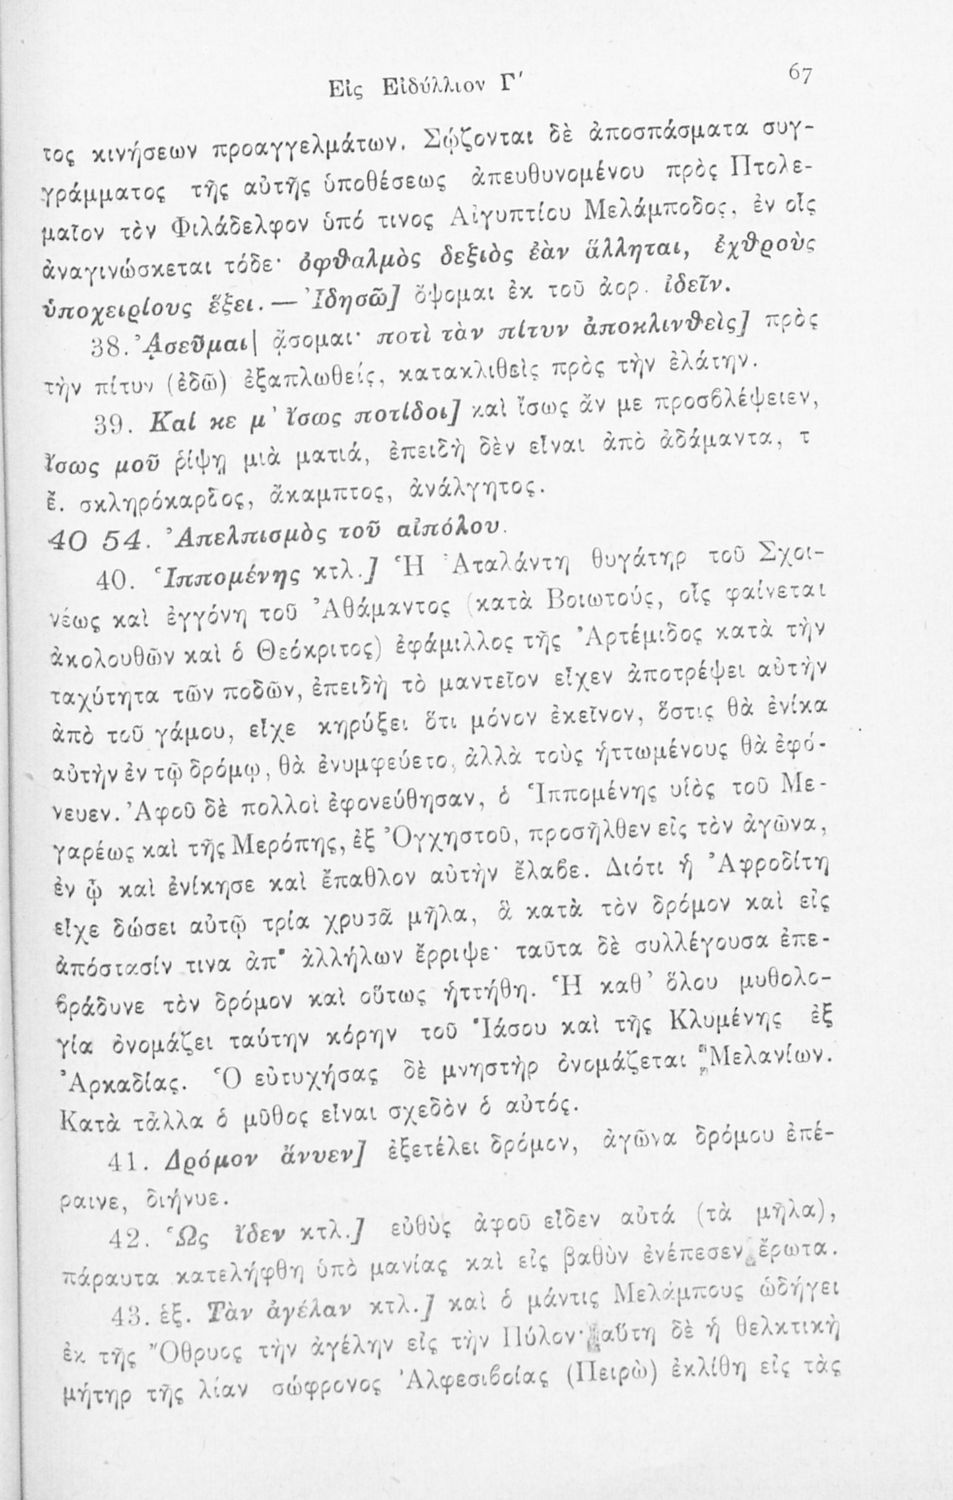 Εἰς Εἰδύλλιον Γ΄
67
τος κινήσεων προαγγελμάτων. Σῴζονται δὲ ἀποσπάσματα συγ-
γράμματος τῆς αὐτῆς ὑποθέσεως ἀπευθυνομένου πρὸς Πτολε-
μαῖον τὸν Φιλάδελφον ὑπό τινος Αἰγυπτίου Μελάμποδος, ἐν οἷς
ἀναγινώσκεται τόδε· ὀφθαλμὸς δεξιὸς ἐὰν ἅλληται, ἐχθροὺς
ὑποχειρίους ἕξει. — Ἰδησῶ] ὄψομαι ἐκ τοῦ ἀορ. ἰδεῖν.
38. ᾈσεῦμαι] ᾄσομαι· ποτὶ τὰν πίτυν ἀποκλινθεὶς] πρὸς
τὴν πίτυν (ἐδῶ) ἐξαπλωθείς, κατακλιθεὶς πρὸς τὴν ἐλάτην.
39. Καί κε μ' ἴσως ποτίδοι] καὶ ἴσως ἄν με προσβλέψειεν,
ἴσως μοῦ ῥίψῃ μιὰ ματιά, ἐπειδὴ δὲν εἶναι ἀπὸ ἀδάμαντα, τ
ἔ. σκληρόκαρδος, ἄκαμπτος, ἀνάλγητος.
40 54. Ἀπελπισμὸς τοῦ αἰπόλου.
40. Ἱππομένης κτλ.] Ἡ Ἀταλάντη θυγάτηρ τοῦ Σχοι-
νέως καὶ ἐγγόνη τοῦ Ἀθάμαντος (κατὰ Βοιωτούς, οἷς φαίνεται
ἀκολουθῶν καὶ ὁ Θεόκριτος) ἐφάμιλλος τῆς Ἀρτέμιδος κατὰ τὴν
ταχύτητα τῶν ποδῶν, ἐπειδὴ τὸ μαντεῖον εἶχεν ἀποτρέψει αὐτὴν
ἀπὸ τοῦ γάμου, εἶχε κηρύξει ὅτι μόνον ἐκεῖνον, ὅστις θὰ ἐνίκα
αὐτὴν ἐν τῷ δρόμῳ, θὰ ἐνυμφεύετο, ἀλλὰ τοὺς ἡττωμένους θὰ ἐφό-
νευεν. Ἀφοῦ δὲ πολλοὶ ἐφονεύθησαν, ὁ Ἱππομένης υἱὸς τοῦ Με-
γαρέως καὶ τῆς Μερόπης, ἐξ Ὀγχηστοῦ, προσῆλθεν εἰς τὸν ἀγῶνα,
ἐν ᾧ καὶ ἐνίκησε καὶ ἔπαθλον αὐτὴν ἔλαβε. Διότι ἡ Ἀφροδίτη
εἶχε δώσει αὐτῷ τρία χρυσᾶ μῆλα, ἃ κατὰ τὸν δρόμον καὶ εἰς
ἀπόστασίν τινα ἀπ' ἀλλήλων ἔρριψε· ταῦτα δὲ συλλέγουσα ἐπε-
βράδυνε τὸν δρόμον καὶ οὕτως ἡττήθη. Ἡ καθ' ὅλου μυθολο-
γία ὀνομάζει ταύτην κόρην τοῦ Ἰάσου καὶ τῆς Κλυμένης ἐξ
Ἀρκαδίας. Ὁ εὐτυχήσας δὲ μνηστὴρ ὀνομάζεται Μελανίων.
Κατὰ τἆλλα ὁ μῦθος εἶναι σχεδὸν ὁ αὐτός.
41. Δρόμον ἄνυεν] ἐξετέλει δρόμον, ἀγῶνα δρόμου ἐπέ-
ραινε, διήνυε.
42. Ὡς ἴδεν κτλ.] εὐθὺς ἀφοῦ εἶδεν αὐτά (τὰ μῆλα),
πάραυτα κατελήφθη ὑπὸ μανίας καὶ εἰς βαθὺν ἐνέπεσεν ἔρωτα.
43. ἑξ. Τὰν ἀγέλαν κτλ.] καὶ ὁ μάντις Μελάμπους ὡδήγει
ἐκ τῆς Ὄθρυος τὴν ἀγέλην εἰς τὴν Πύλον· αὕτη δὲ ἡ θελκτικὴ
μήτηρ τῆς λίαν σώφρονος Ἀλφεσιβοίας (Πειρὼ) ἐκλίθη εἰς τὰς